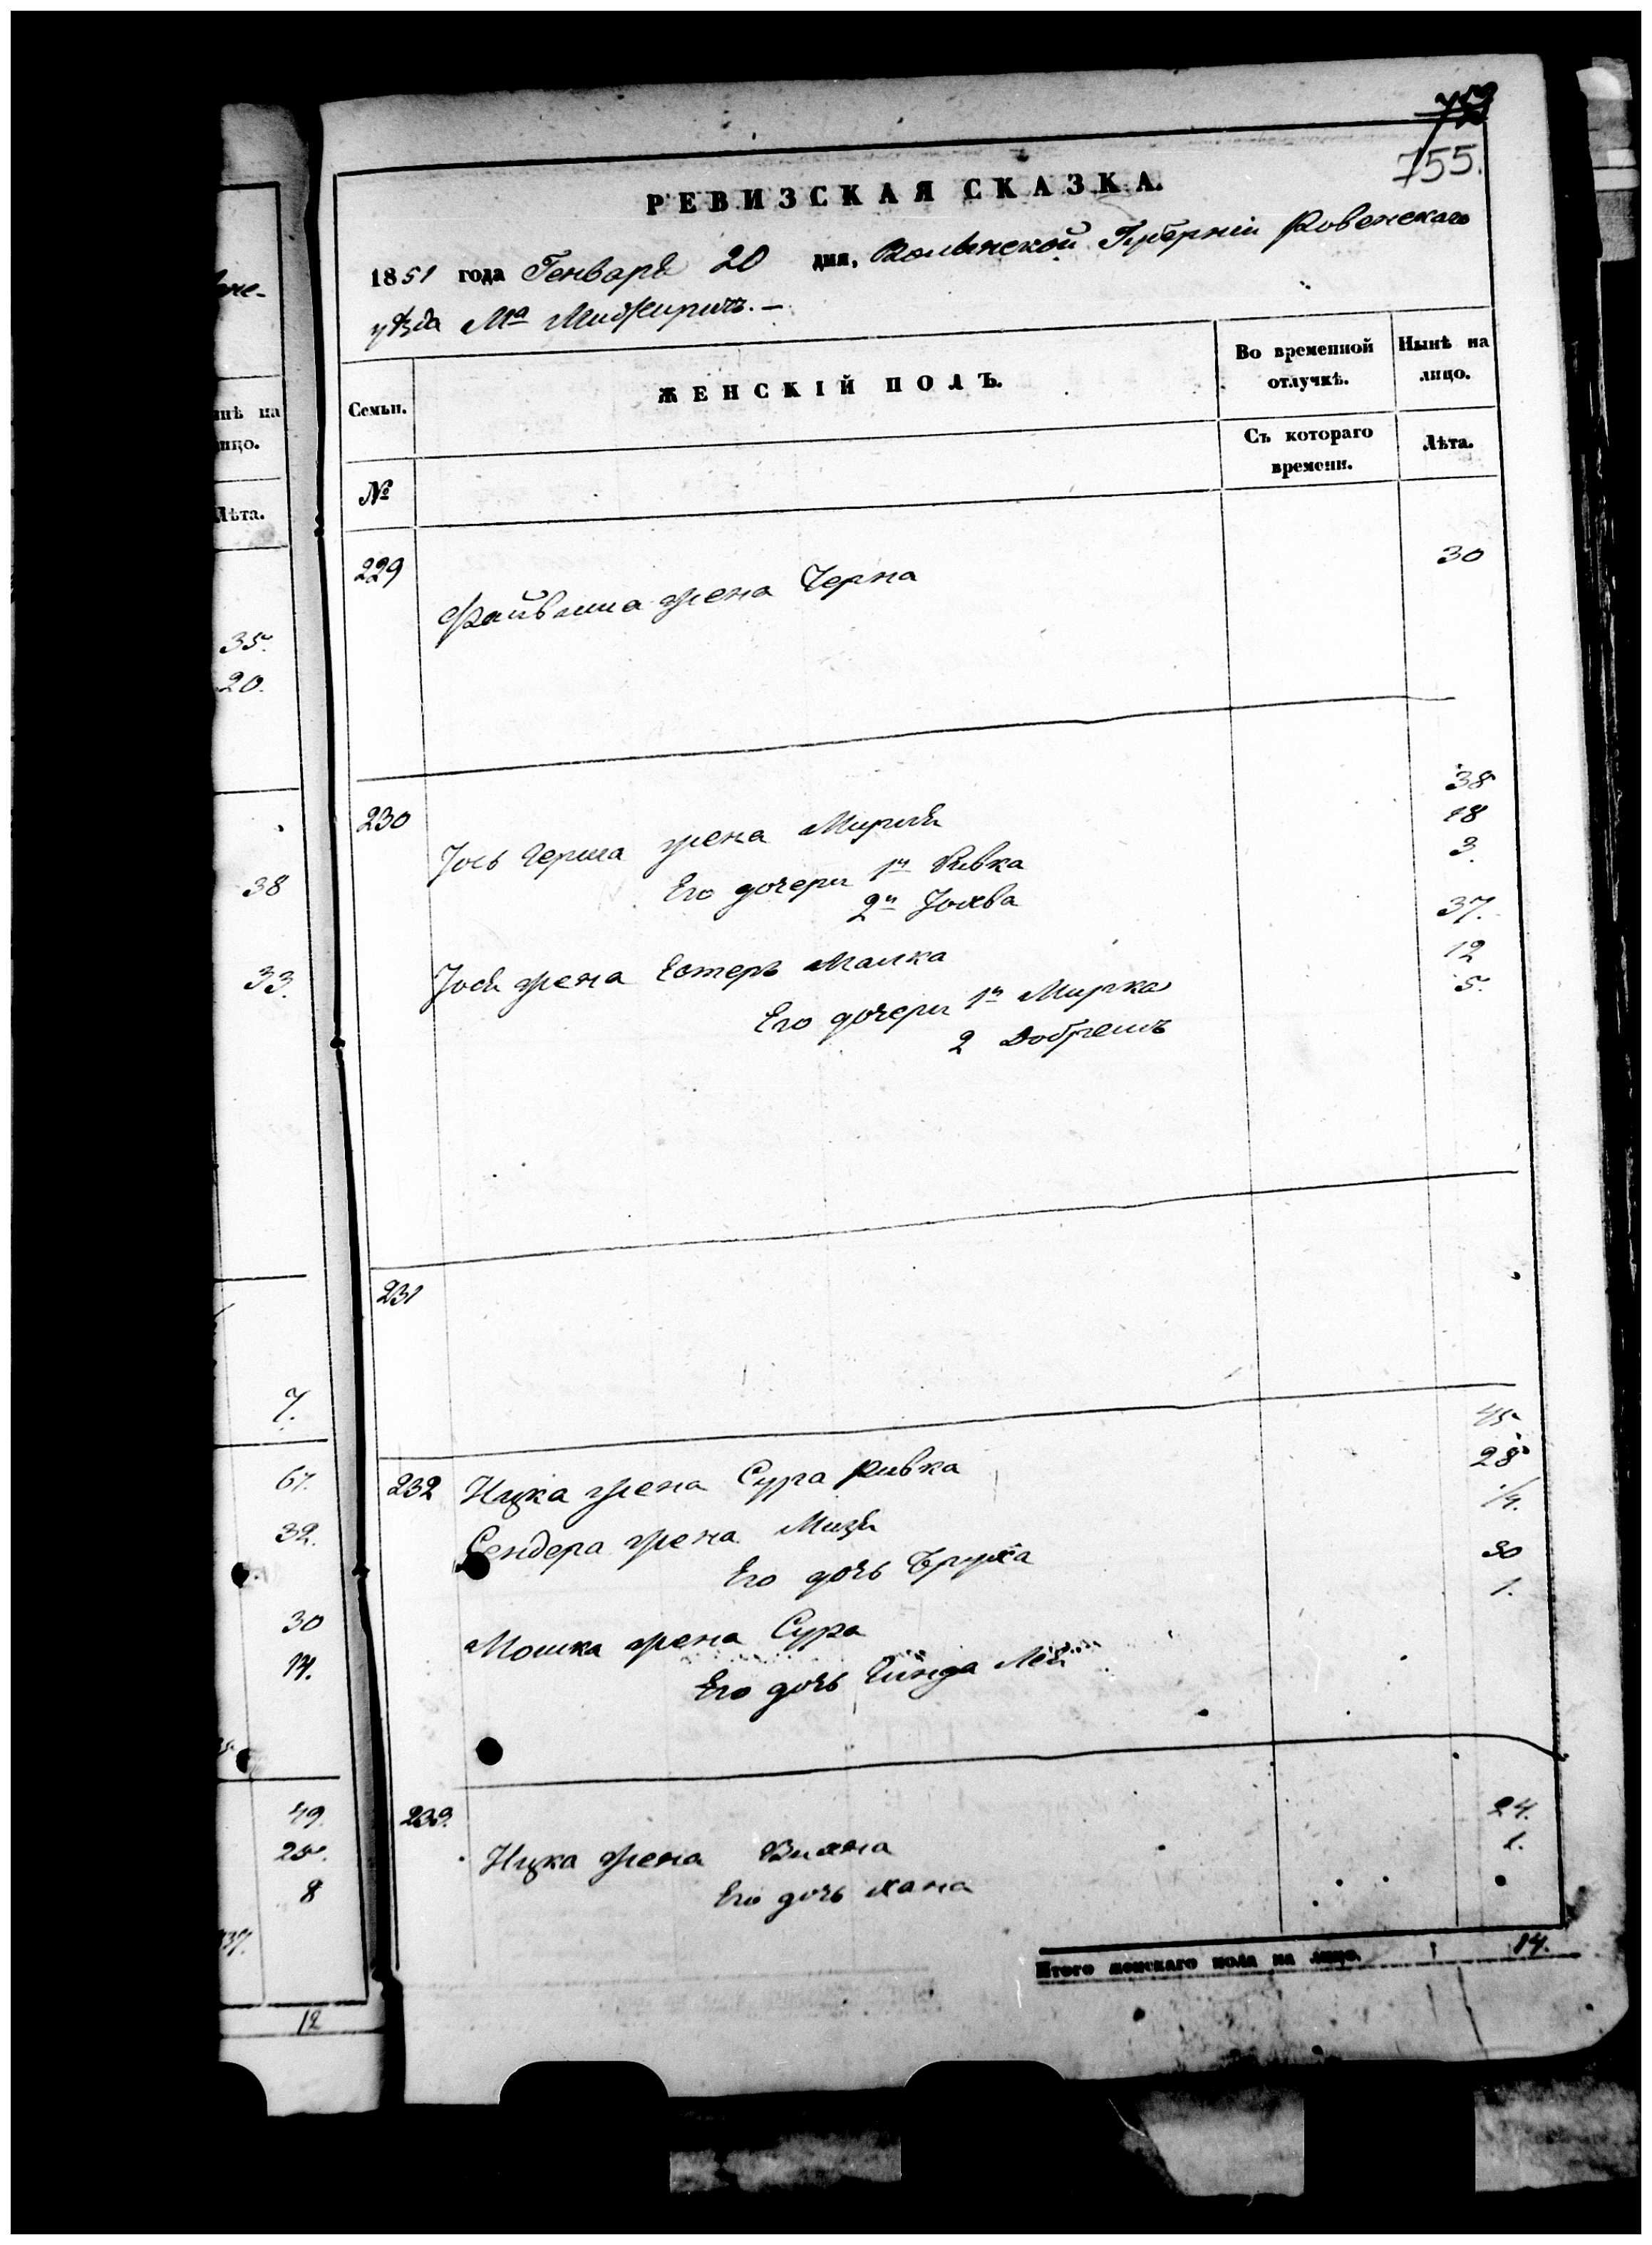 755.
РЕВИЗСКАЯ СКАЗКА.
1851 года Генваря 20 дня, Волынской Губерніи Ровенскаго
уѣзда Ма Межиричъ. —
Семьи.
ЖЕНСКІЙ ПОЛЪ.
Во временной отлучкѣ.
Нынѣ на лицо.
№
Съ котораго времени.
Лѣта.
229 Файвиша жена Черна 30
230 Іось Герша жена Мириля 38
Его дочери 1я Ривка 18
2я Іохва 3.
Іося жена Естеръ Малка 37.
Его дочери 1я Мирка 12
2 Добрешъ 5.
231
232 Ицка жена Сура Ривка 45
Сендера жена 28
Его дочь Бруха 1/4.
Мошка жена Сура 30
Его дочь Гинда Лея 1.
233. Ицка жена 24.
Его дочь Хана 1.
Итого женскаго пола на лицо. 14.
нѣ на
ицо.
Лѣта.
35.
20.
38
33.
7.
67.
32.
30
14.
49.
25.
8
12